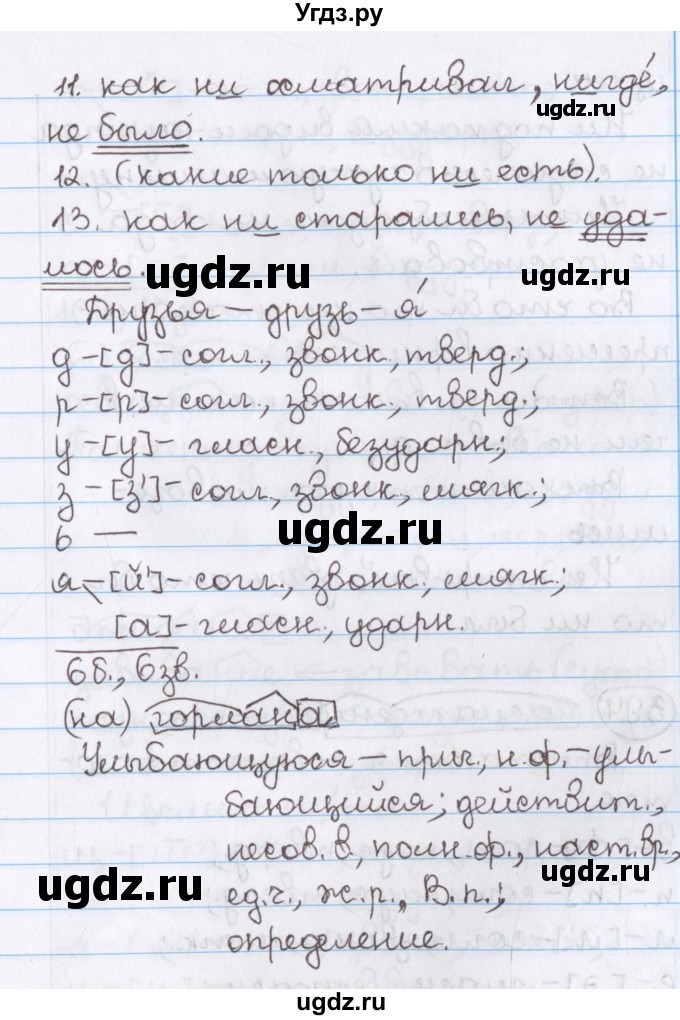 Угдз.ру
11. как ни осматривал, нигде́,
ugdz.ru
не было.
12. (какие только ни есть).
13. как ни старались, не уда-
лось.
ugdz.ru ugdz.ru
Друзья – друзь – я́
д – [д] – согл., звонк., тверд.;
р – [р] – согл., звонк., тверд.;
у – [у] – гласн., безударн.;
з – [з'] – согл., звонк., мягк.;
ь —
ugdz.ru
я – [й'] – согл., звонк., мягк.;
[а] – гласн., ударн.
6 б., 6 зв.
(на) гормана
Улыбающуюся – прич., н.ф. – улы-
бающийся; действит.,
несов. в., полн. ф., наст. вр.,
ugdz.ru ugdz.ru
ед.ч., ж.р., В.п.;
определение.
ugdz.ru